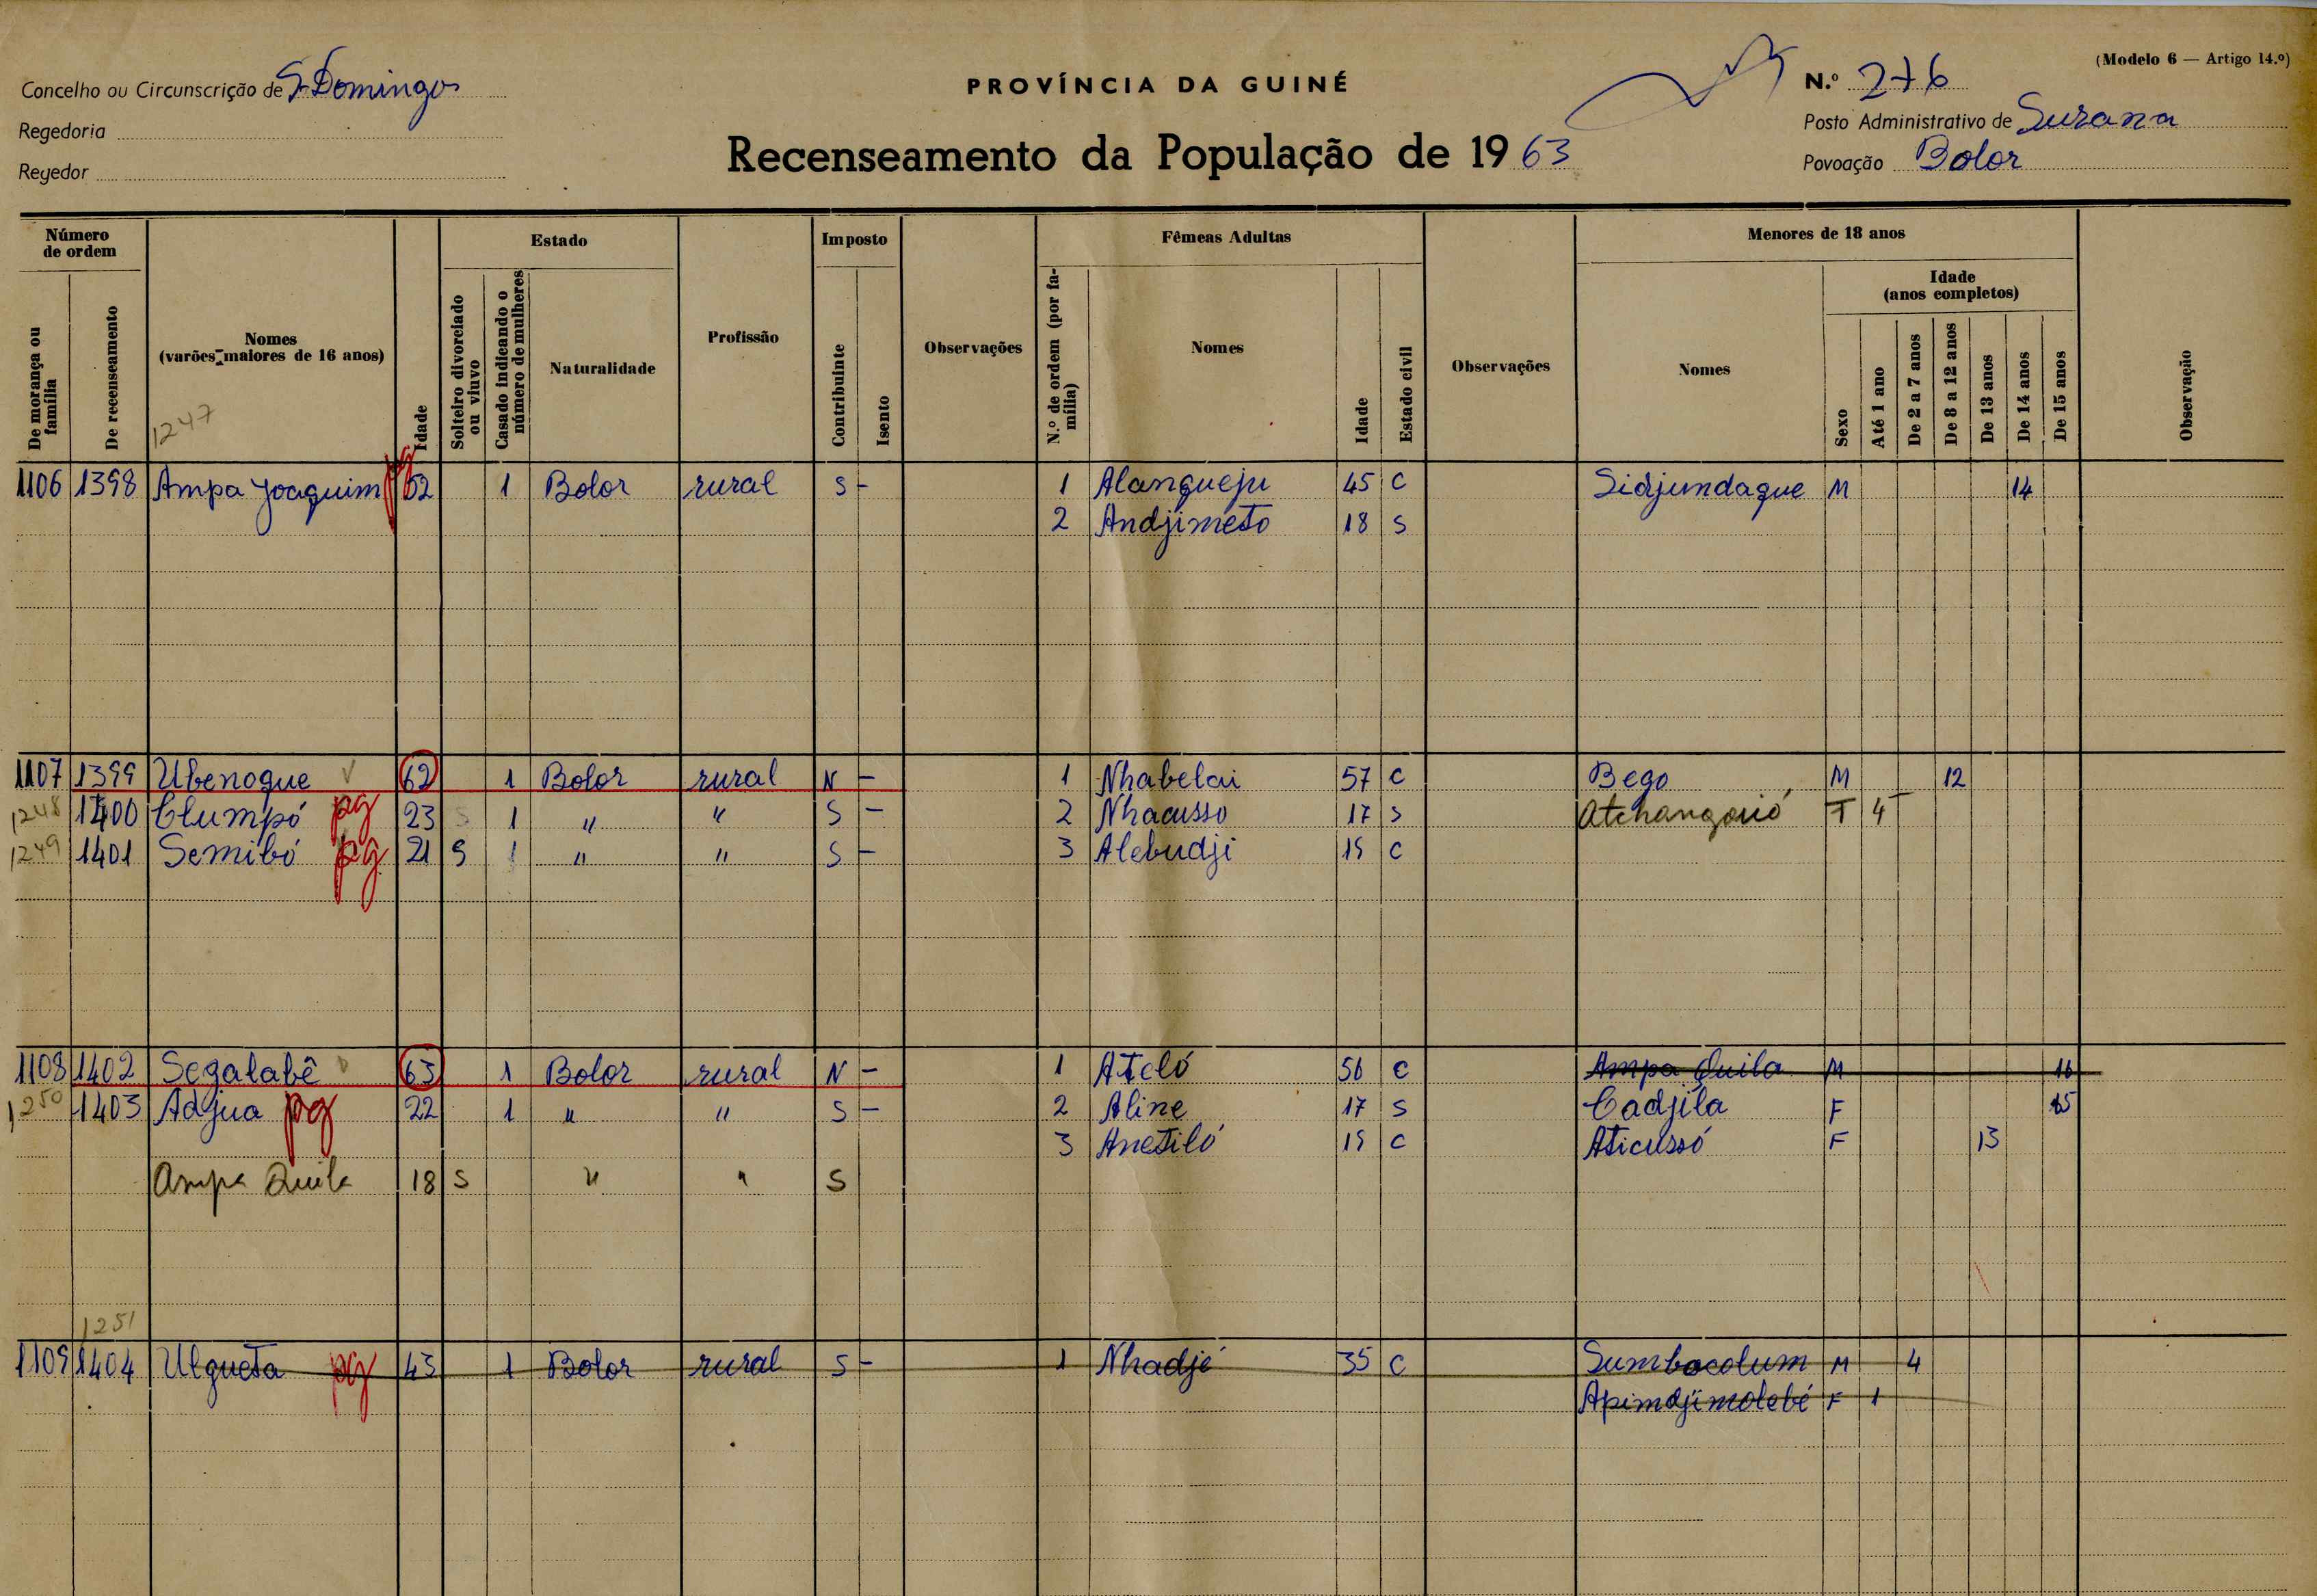 (Modelo 6 — Artigo 14.º)
Concelho ou Circunscrição de S. Domingos
PROVÍNCIA DA GUINÉ
N.º 276
Regedoria
Posto Administrativo de Suzana
Regedor
Recenseamento da População de 1963
Povoação Bolor
Número de ordem
Estado
Imposto
Fêmeas Adultas
Menores de 18 anos
De morança ou família
De recenseamento
Nomes (varões maiores de 16 anos)
Idade
Solteiro divorciado ou viuvo
Casado indicando o número de mulheres
Naturalidade
Profissão
Contribuinte
Isento
Observações
N.º de ordem (por família)
Nomes
Idade
Estado civil
Observações
Nomes
Sexo
Idade (anos completos)
Até 1 ano
De 2 a 7 anos
De 8 a 12 anos
De 13 anos
De 14 anos
De 15 anos
Observação
1247
1106 1398 Ampa Joaquim pg 62 1 Bolor rural S - 1 Alangueju 45 C Sidjundague M 14
2 Andjimeto 18 S
1107 1399 Ubenogue 62 1 Bolor rural N - 1 Nhabelai 57 C Bego M 12
1248 1400 Clumpó pg 23 S 1 " " S - 2 Nhacusso 17 S
1249 1401 Semibó pg 21 S 1 " " S - 3 Alebudji 19 C
1108 1402 Segalabê 63 1 Bolor rural N - 1 Ateló 56 C Ampa Quila M 16
1250 1403 Adjua pg 22 1 " " S - 2 Aline 17 S Cadjila F 15
3 Anetiló 19 C Aticussó F 13
Ampa Quila 18 S " " S
1251
1109 1404 Ulgueta pg 43 1 Bolor rural S - 1 Nhadjé 35 C Sumbocolum M 4
Apimdjimolebé F 1